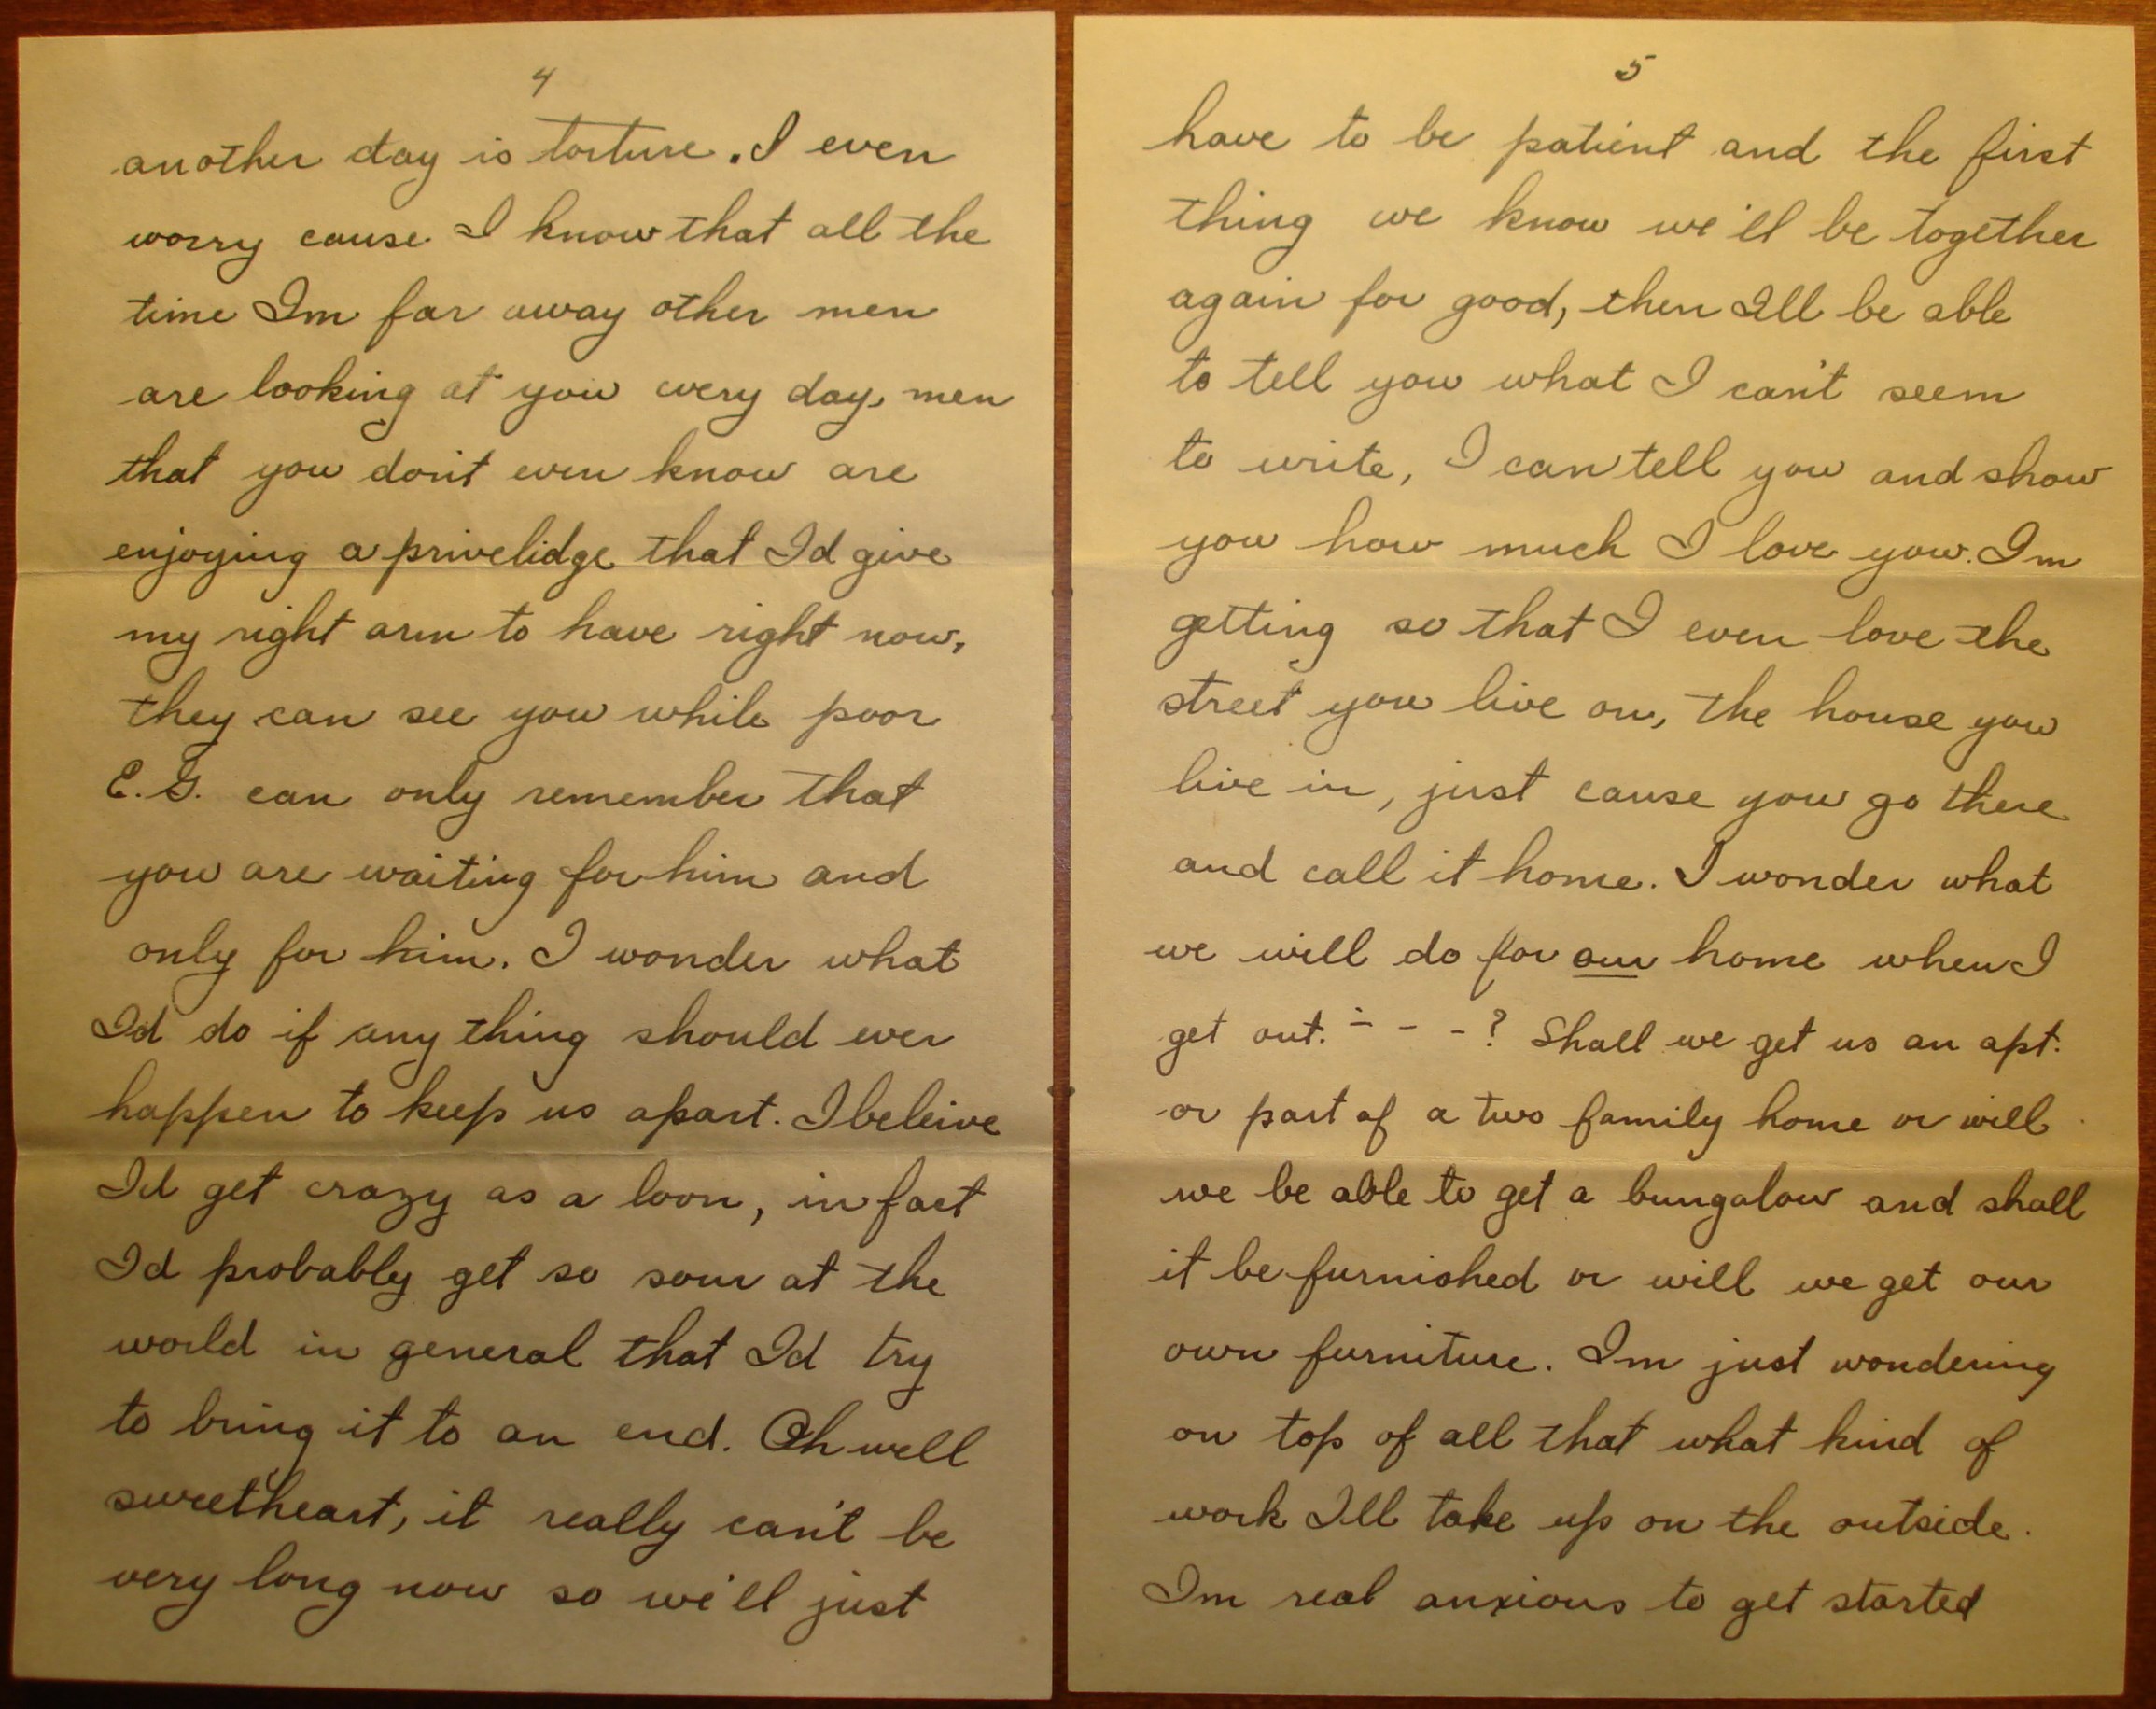 4
another day is torture. I even
worry cause I know that all the
time Im far away other men
are looking at you every day, men
that you don't even know are
enjoying a privelidge that Id give
my right arm to have right now,
they can see you while poor
E.G. can only remember that
you are waiting for him and
only for him. I wonder what
Id do if any thing should ever
happen to keep us apart. I beleive
Id get crazy as a loon, in fact
Id probably get so sour at the
world in general that Id try
to bring it to an end. Oh well
sweetheart, it really can't be
very long now so we'll just
5
have to be patient and the first
thing we know we'll be together
again for good, then Ill be able
to tell you what I can't seem
to write, I can tell you and show
you how much I love you. Im
getting so that I even love the
street you live on, the house you
live in, just cause you go there
and call it home. I wonder what
we will do for our home when I
get out. - - - ? Shall we get us an apt.
or part of a two family home or will
we be able to get a bungalow and shall
it be furnished or will we get our
own furniture. Im just wondering
on top of all that what kind of
work Ill take up on the outside.
Im real anxious to get started